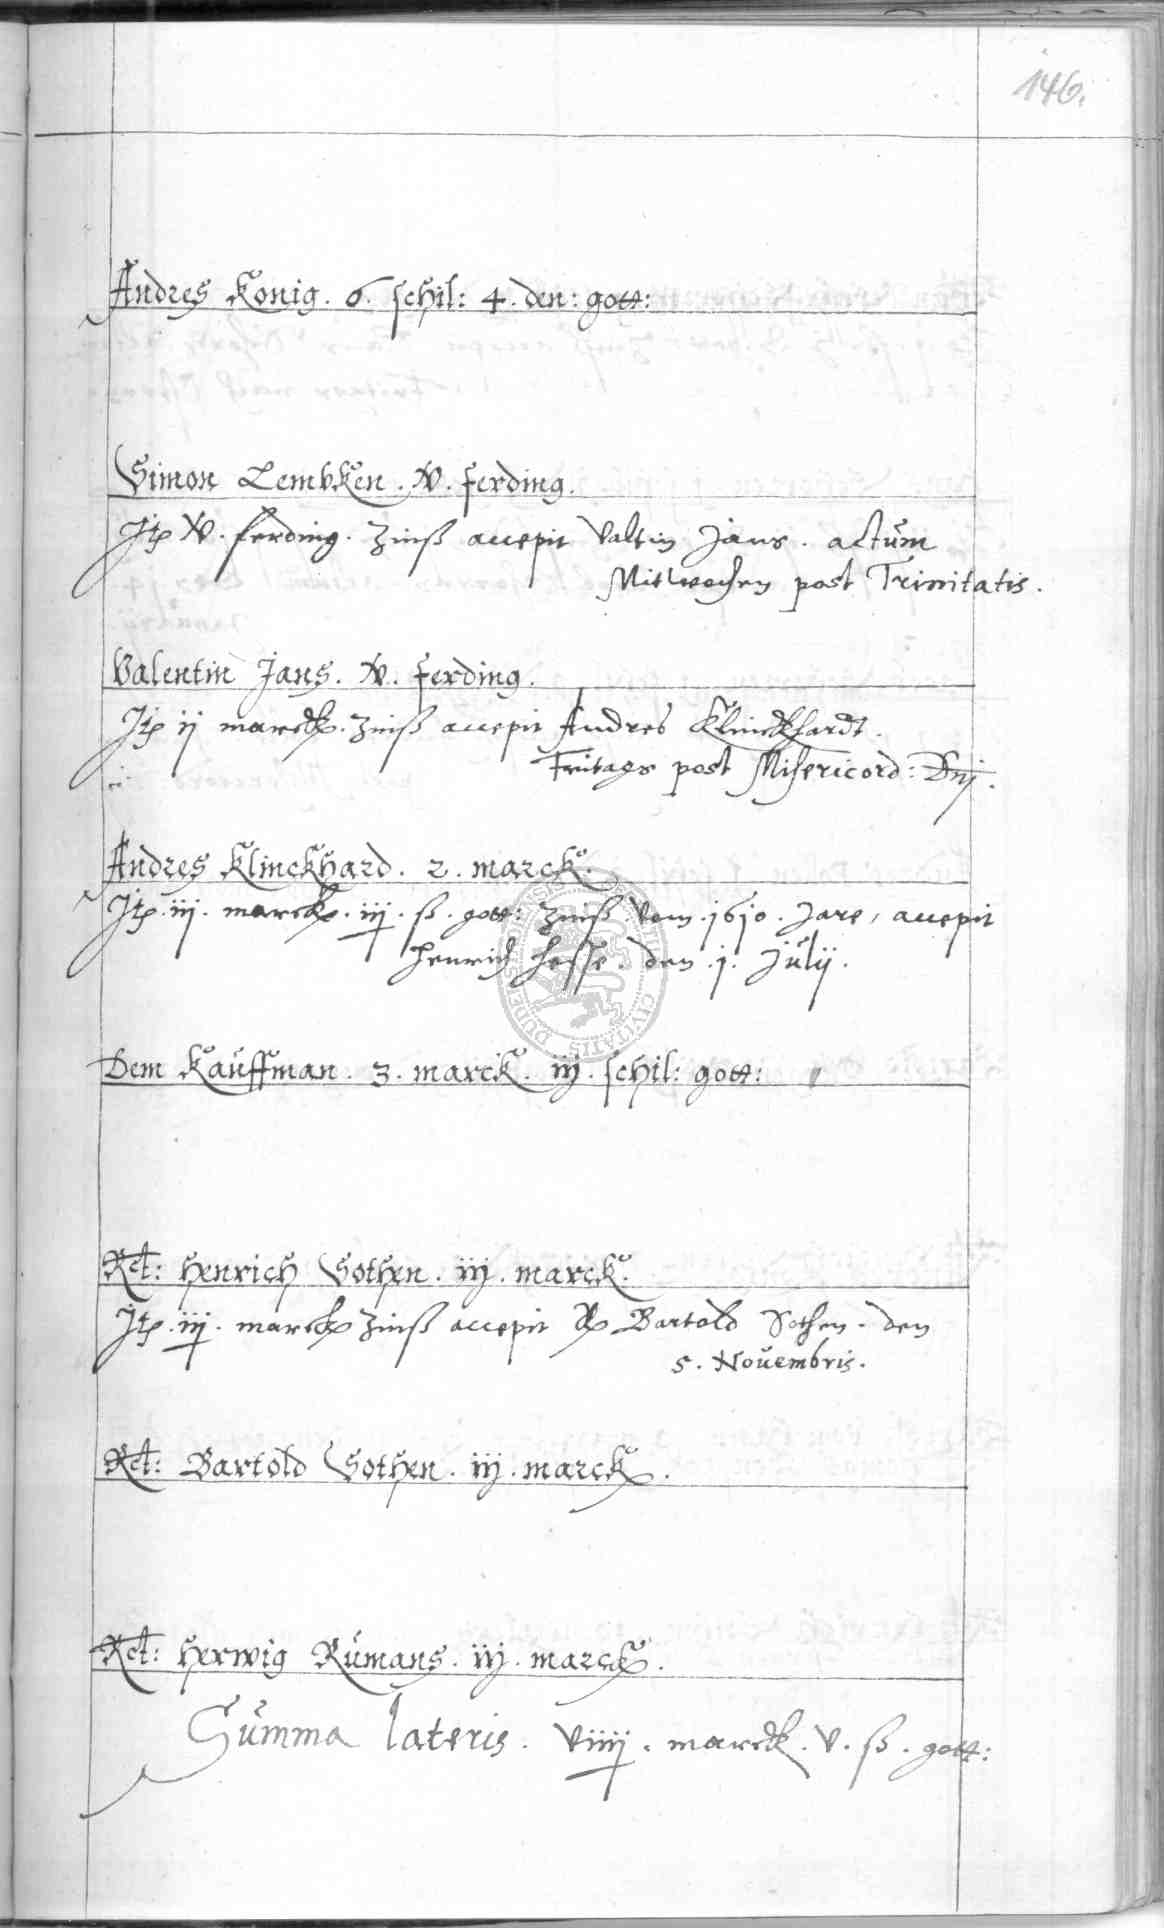 146.
Andres Konig. 6. schil: 4. den: gott:
Simon Lembken. V. ferding.
Itp V. ferding. Zinß accepit Valtin Jans. actum
Mitwochen post Trinitatis.
Valentin Jans. V. ferding.
Itp ij marck. Zinß accepit Andres Klinckhardt.
Fritags post Misericord: Dnj.
Andres Klinckhard. 2. marck.
Itp. iij. marck. iij. ß. gott: Zinß Vom. 1610. Jare, accepit
Henrich Hesse. den. j. Julij.
Dem Kauffman. 3. marck. iij. schil: gott:
Rct: Henrich Sothen. iij. marck.
Itp. iij. marck Zinß accepit Bartold Sothen. den
5. Novembris.
Rct: Bartold Sothen. iij. marck.
Rct: Herwig Rumans. iij. marck.
Summa lateris. Viiij. marck. V. ß. gott:
CIVITATIS